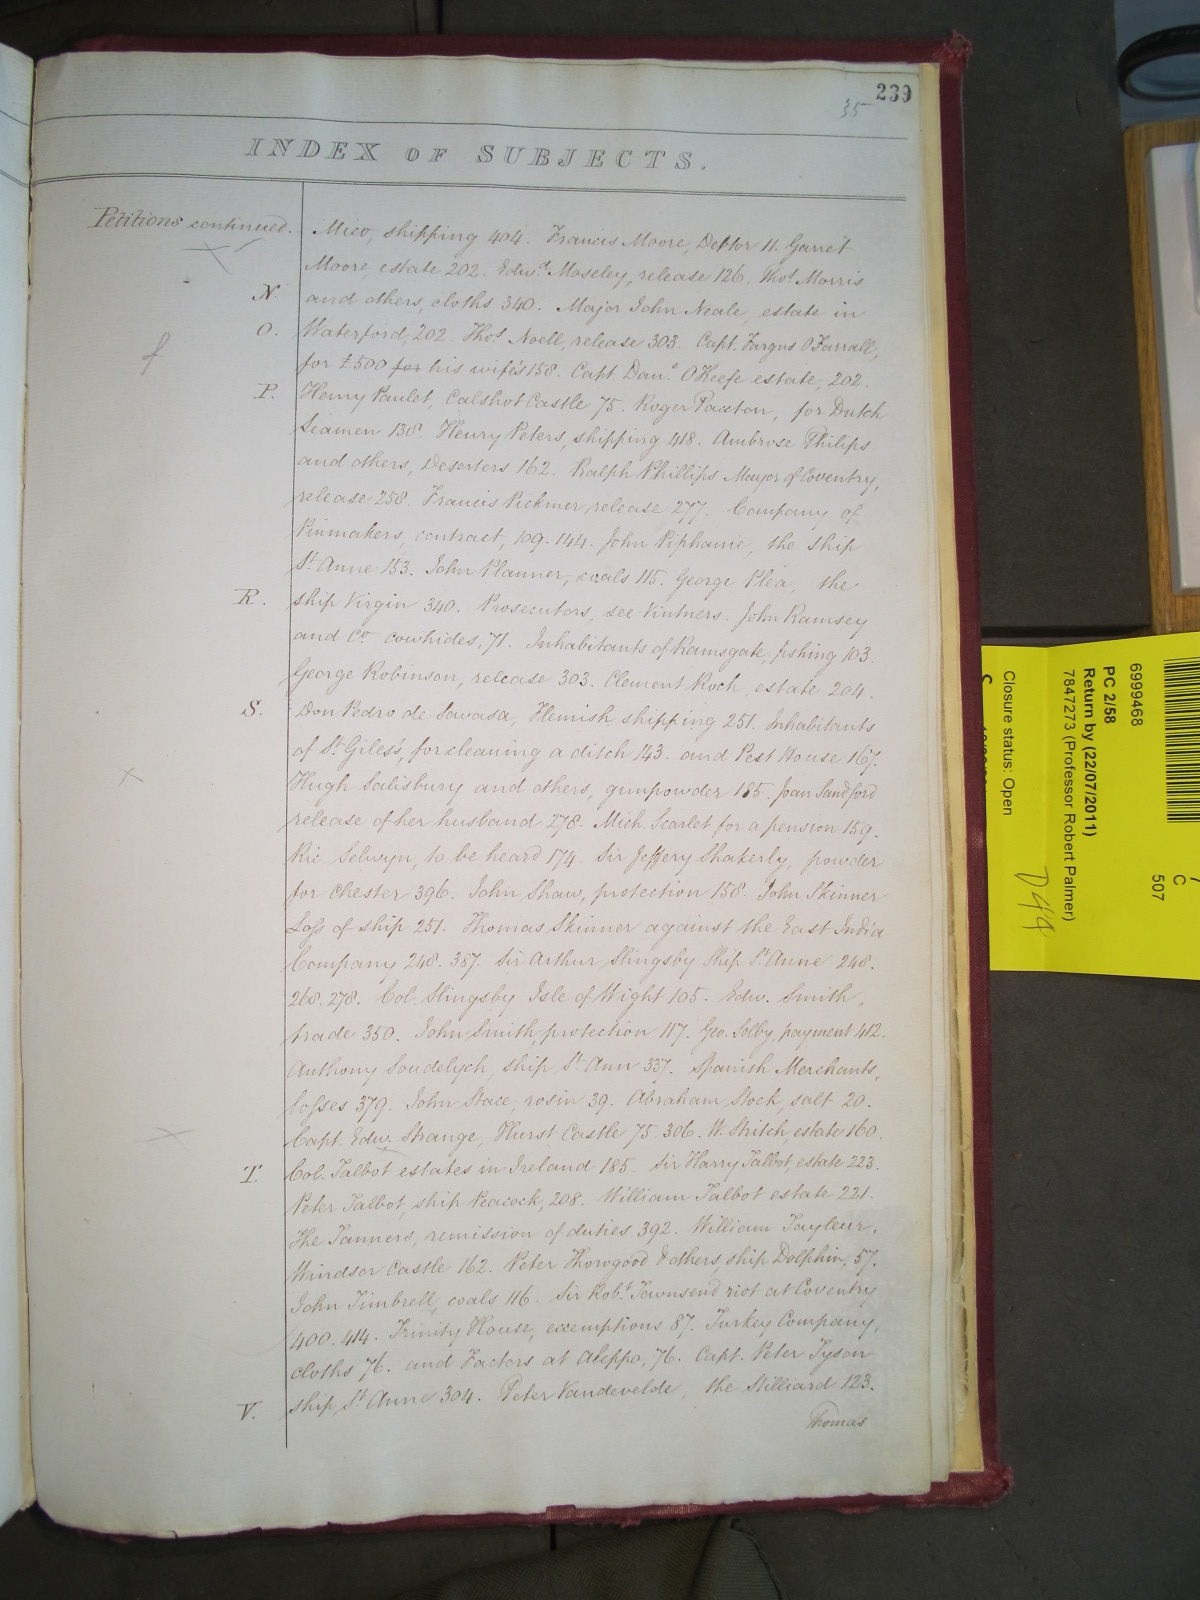 239
35
INDEX OF SUBJECTS.
Petitions continued.
Mico, shipping 404. Francis Moore, Debtor 11. Garret
Moore, estate 202. Edwd. Moseley, release 126. Thos. Morris
N. and others, cloths 340. Major John Neale, estate in
O. Waterford, 202. Thos. Noell, release 303. Capt. Fargus O'Farrall,
for £500 for his wife's 158. Capt Danl. O'Keefe estate, 202.
P. Henry Paulet, Calshot Castle 75. Roger Paxton, for Dutch
Seamen 138. Henry Peters, shipping 418. Ambrose Philips
and others, Deserters 162. Ralph Phillips Mayor of Coventry,
release 258. Francis Pickmer, release 277. Company of
Pinmakers, contract, 109. 144. John Piphanie, the ship
St. Anne 153. John Planner, coals 115. George Plea, the
R. ship Virgin 340. Prosecutors, see Vintners. John Ramsey
and Co. cowhides, 71. Inhabitants of Ramsgate, fishing 103.
George Robinson, release 303. Clement Roch, estate 204.
S. Don Pedro de Savasa, Flemish shipping 251. Inhabitants
of St. Giles's, for cleaning a ditch 143. and Pest House 167.
Hugh Salisbury and others, gunpowder 185. Joan Sandford
release of her husband 278. Mich. Scarlet for a pension 159.
Ric. Selwyn, to be heard 174. Sir Jeffery Shakerly, powder
for Chester 396. John Shaw, protection 158. John Skinner
Loss of ship 251. Thomas Skinner against the East India
Company 248. 387. Sir Arthur Slingsby Ship St. Anne 248.
268. 278. Col. Slingsby Isle of Wight 105. Edw. Smith,
trade 350. John Smith, protection 117. Geo. Solby, payment 412.
Anthony Soudelych, ship, St. Ann 337. Spanish Merchants,
losses 379. John Stace, rosin 39. Abraham Stock, salt 20.
Capt. Edw. Strange, Hurst Castle 75. 306. W. Stritch, estate 160.
T. Col. Talbot estates in Ireland 185. Sir Harry Talbot, estate 223.
Peter Talbot, ship Peacock, 208. William Talbot estate 221.
The Tanners, remission of duties 392. William Tayleur,
Windsor Castle 162. Peter Thorogood & others, ship Dolphin, 57.
John Timbrell, coals 116. Sir Robt. Townsend riot at Coventry
400. 414. Trinity House, exemptions 87. Turkey Company,
cloths 76. and Factors at Aleppo, 76. Capt. Peter Tyson
V. ship, St. Anne 304. Peter Vandevelde, the Stilliard 123.
Thomas
6999468
PC 2/58
Return by (22/07/2011)
7847273 (Professor Robert Palmer)
Closure status: Open
C
507
D49